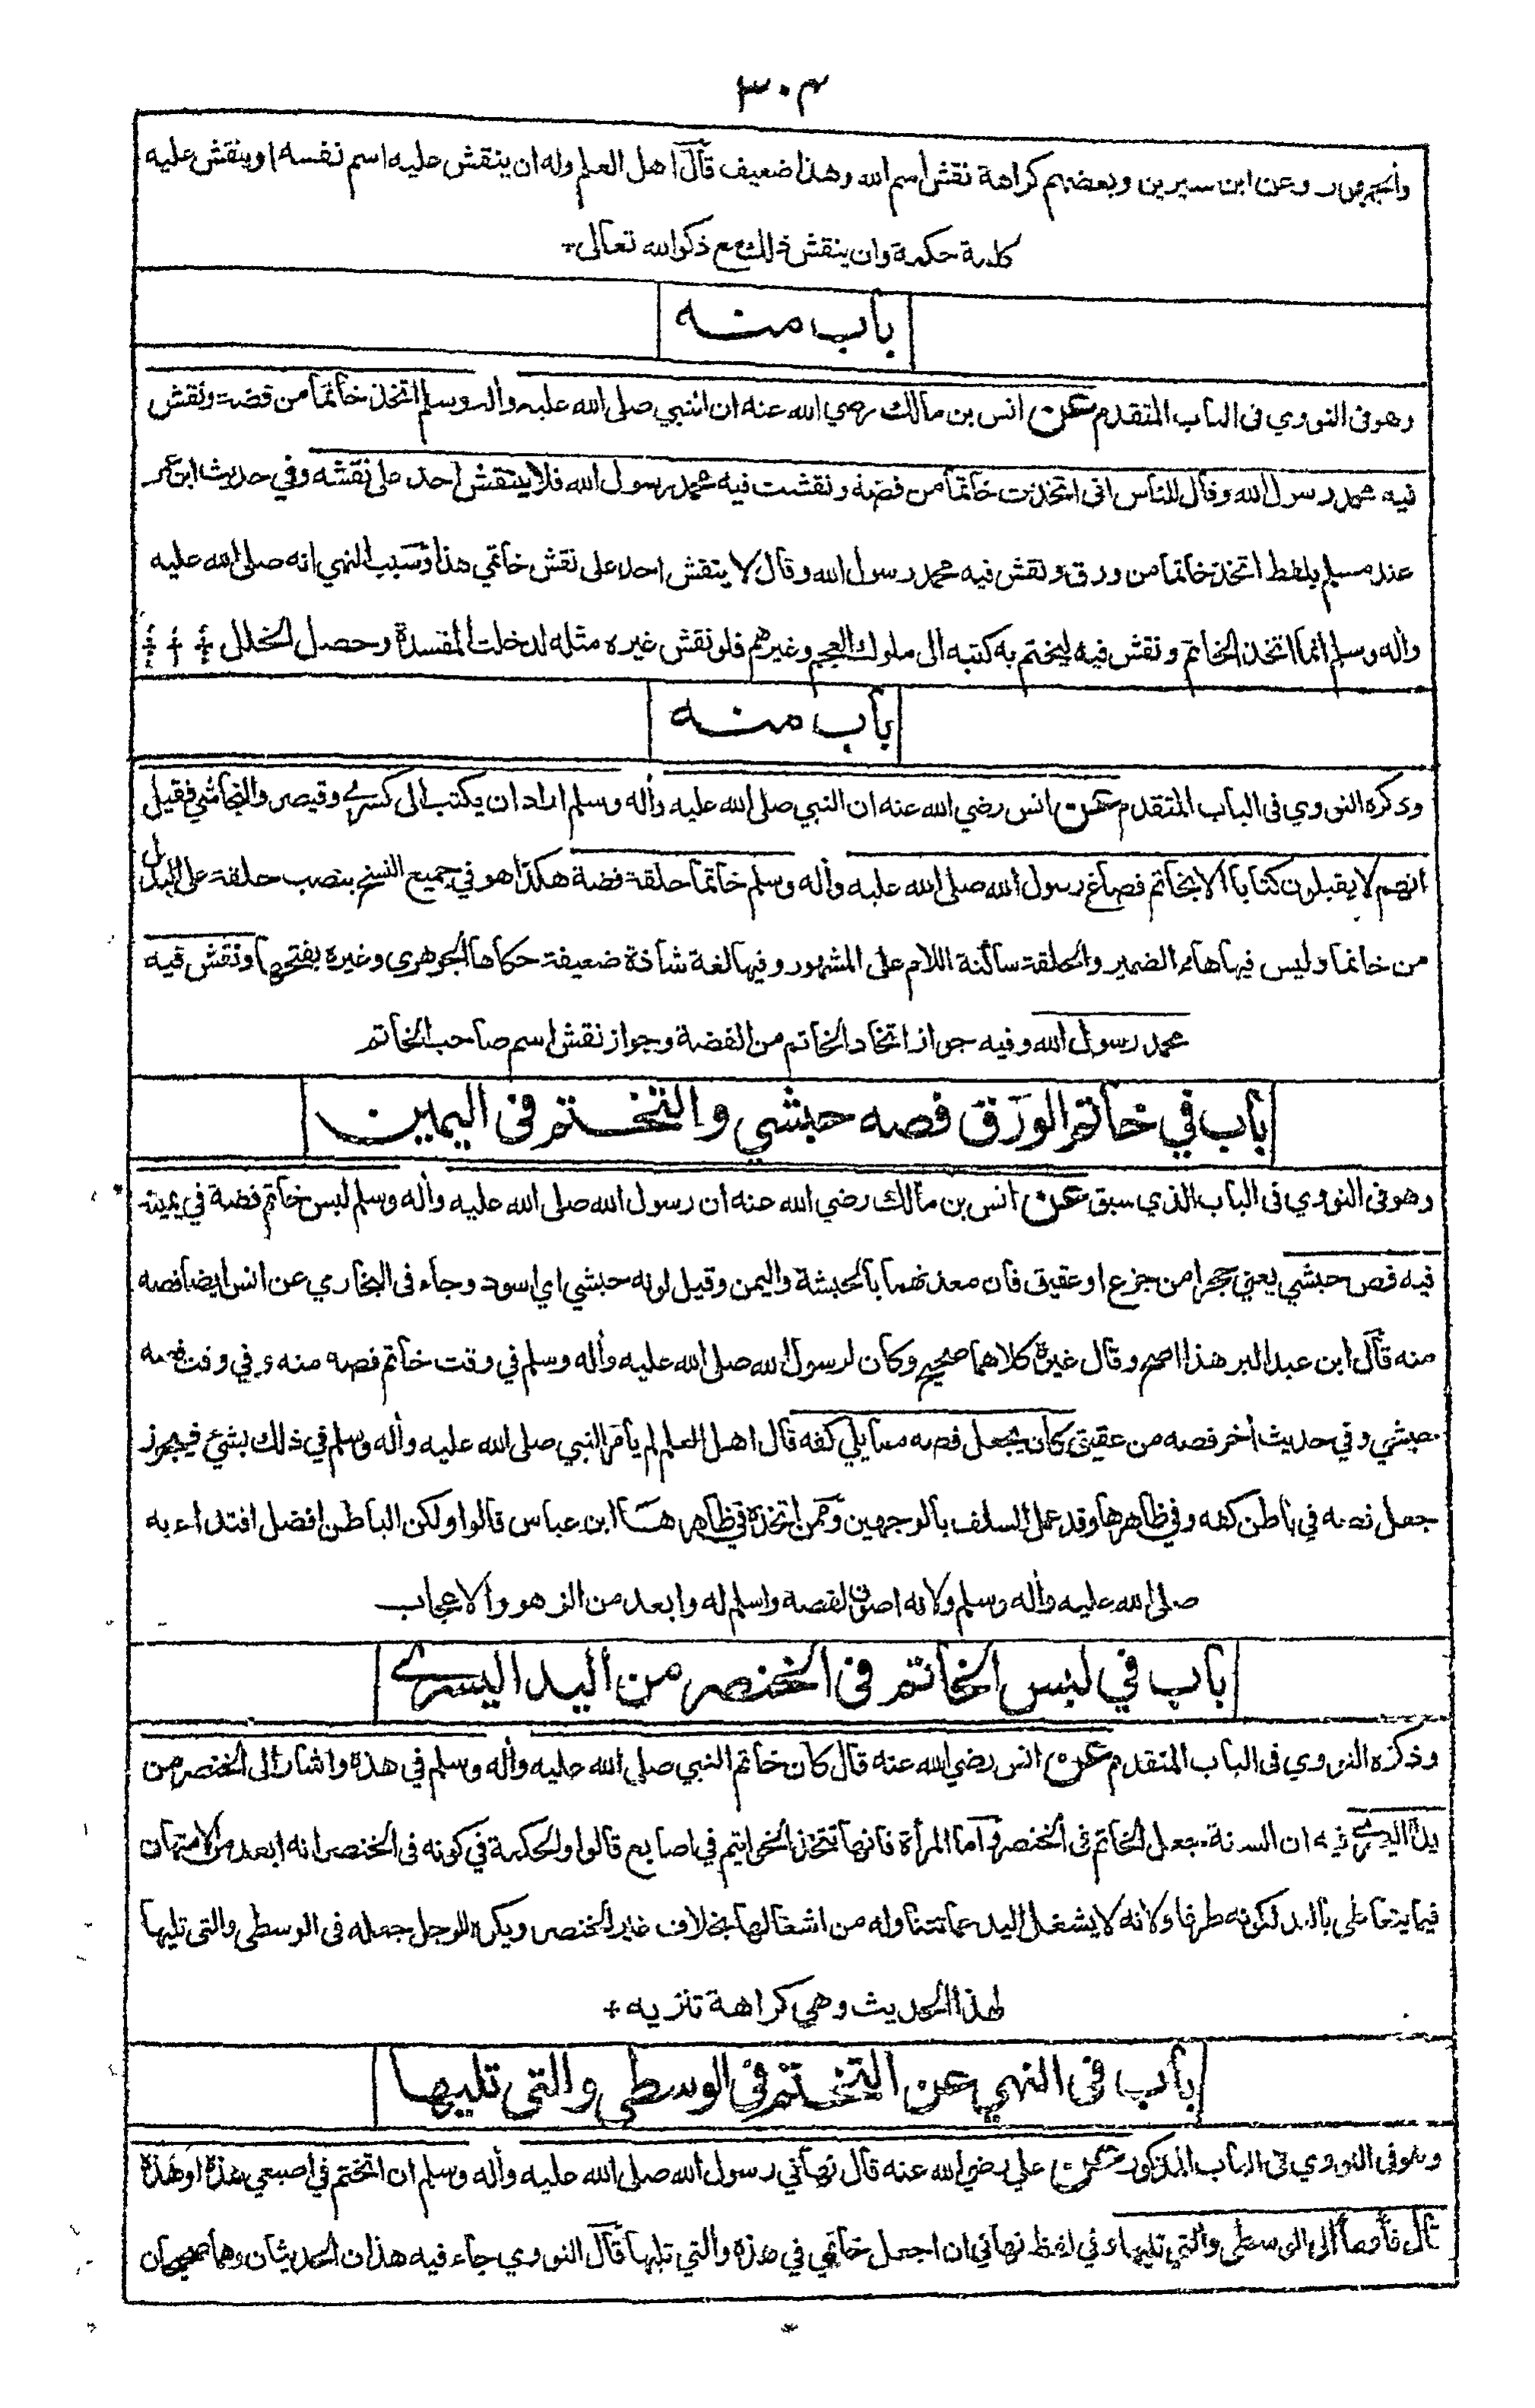 ٣٠٤
والجمهور وعن ابن سيرين وبعضهم كراهة نقش اسم الله وهذا ضعيف قال اهل العلم وله ان ينقش عليه اسم نفسه اوينقش عليه
كلمة حكمة وان ينقش ذلك مع ذكر الله تعالى
باب منه
وهو فى النووي فى الباب المتقدم عن انس بن مالك رضي الله عنه ان النبي صلى الله عليه وأله وسلم اتخذ خاتما من فضة ونقش
فيه محمد رسول الله وقال للناس انى اتخذت خاتما من فضة ونقشت فيه محمد رسول الله فلا ينقش احد على نقشه وفي حديث ابن عمر
عند مسلم بلفظ اتخذ خاتما من ورق ونقش فيه محمد رسول الله وقال لا ينقش احد على نقش خاتمي هذا وسبب النهي انه صلى الله عليه
وأله وسلم انما اتخذ الخاتم ونقش فيه ليختم به كتبه الى ملوك العجم وغيرهم فلو نقش غيره مثله لدخلت المفسدة وحصل الخلل
باب منه
وذكره النووي فى الباب المتقدم عن انس رضي الله عنه ان النبي صلى الله عليه وأله وسلم اراد ان يكتب الى كسرى وقيصر والنجاشي فقيل
انهم لا يقبلون كتابا الا بخاتم فصاغ رسول الله صلى الله عليه وأله وسلم خاتما حلقة فضة هكذا هو في جميع النسخ بنصب حلقة على البدل
من خاتما وليس فيها هاء الضمير والحلقة ساكنة اللام على المشهور وفيها لغة شاذة ضعيفة حكاها الجوهري وغيره بفتحها ونقش فيه
محمد رسول الله وفيه جواز اتخاذ الخاتم من الفضة وجواز نقش اسم صاحب الخاتم
باب في خاتم الورق فصه حبشي والتختم فى اليمين
وهو فى النووي فى الباب الذي سبق عن انس بن مالك رضي الله عنه ان رسول الله صلى الله عليه وأله وسلم لبس خاتم فضة في يمينه
فيه فص حبشي يعني حجرا من جزع او عقيق فان معدنهما بالحبشة واليمن وقيل لونه حبشي اي اسود وجاء فى البخاري عن انس ايضا فصه
منه قال ابن عبد البر هذا اصح وقال غيره كلاهما صحيح وكان لرسول الله صلى الله عليه وأله وسلم في وقت خاتم فصه منه وفي وقت فصه
حبشي وفي حديث أخر فصه من عقيق كان يجعل فصه مما يلي كفه قال اهل العلم لم يأمر النبي صلى الله عليه وأله وسلم في ذلك بشئ فيجوز
جعل فصه في باطن كفه وفي ظاهرها وقد عمل السلف بالوجهين وممن اتخذه في ظاهرها ابن عباس قالوا ولكن الباطن افضل اقتداء به
صلى الله عليه وأله وسلم ولانه اصون لفصه واسلم له وابعد من الزهو والاعجاب
باب في لبس الخاتم فى الخنصر من اليد اليسرى
وذكره النووي فى الباب المتقدم عن انس رضي الله عنه قال كان خاتم النبي صلى الله عليه وأله وسلم في هذه واشار الى الخنصر من
يده اليسرى فيه ان السنة جعل الخاتم فى الخنصر واما المرأة فانها تتخذ الخواتيم في اصابع قالوا والحكمة في كونه فى الخنصر انه ابعد من الامتهان
فيما يتعاطى باليد لكونه طرفا ولانه لا يشغل اليد عما تتناوله من اشغالها بخلاف غير الخنصر ويكره للرجل جعله فى الوسطى والتى تليها
لهذا الحديث وهي كراهة تنزيه
باب فى النهي عن التختم فى الوسطى والتى تليها
وهو فى النووي فى الباب المذكور عن علي رضي الله عنه قال نهاني رسول الله صلى الله عليه وأله وسلم ان اتختم في اصبعي هذه او هذه
قال فأومأ الى الوسطى والتي تليها وفي لفظ نهاني ان اجعل خاتمي في هذه والتي تليها قال النووي جاء فيه هذان الحديثان وهما صحيحان